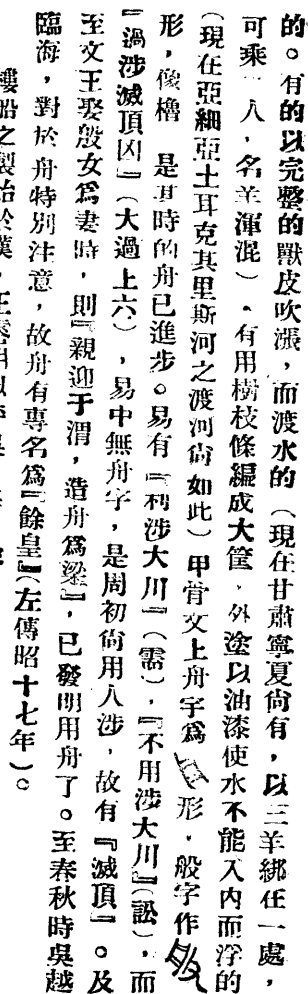 的。有的以完整的獸皮吹漲，而渡水的（現在甘肅寧夏尙有，以三羊綁在一處，
可乘一人，名羊渾混）。有用樹枝條編成大筐，外塗以油漆使水不能入內而浮的
（現在亞細亞土耳克其里斯河之渡河尙如此）甲骨文上舟字爲形，般字作
形，像櫓 是其時的舟已進步。易有『利涉大川』（需），『不用涉大川』（訟），而
『過涉滅頂凶』（大過上六），易中無舟字，是周初尙用人涉，故有『滅頂』。及
至文王娶殷女爲妻時，則『親迎于渭，造舟爲梁』，已發明用舟了。至春秋時吳越
臨海，對於舟特別注意，故舟有專名爲『餘皇』（左傳昭十七年）。
樓船之製始於漢，